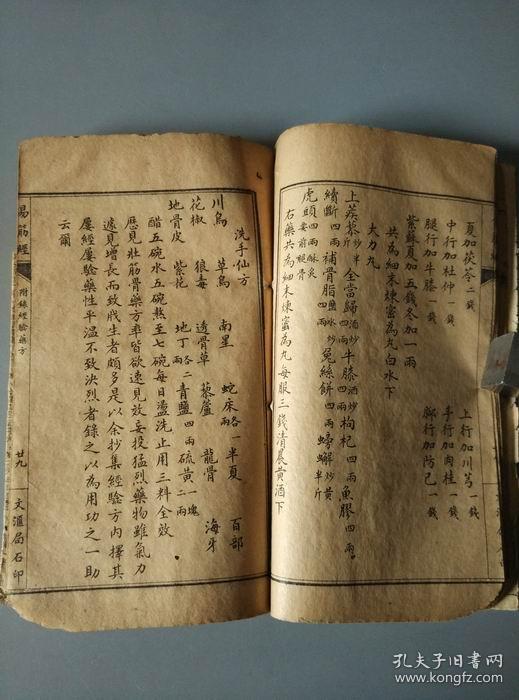 夏加茯苓二錢
中行加杜仲一錢 上行加川芎一錢
腿行加牛膝一錢 手行加肉桂一錢
腳行加防己一錢
紫蘇夏加五錢冬加一兩
共為細末煉蜜為丸白水下
大力丸
上蒺藜半斤炒 全當歸四兩酒炒 牛膝四兩酒炒 枸杞四兩 魚膠四兩
續斷四兩 補骨脂四兩鹽水炒 兔絲餅四兩 螃蟹半斤炒黃
虎頭四兩酥炙要前腿骨
右藥共為細末煉蜜為丸每服三錢清晨黃酒下
洗手仙方
川烏 草烏 南星 蛇床各一兩 半夏 百部
花椒 狼毒 透骨草 藜蘆 龍骨 海牙
地骨皮 紫花 地丁各二兩 青鹽四兩 硫黃一塊二兩
醋五碗水五碗熬至七碗每日盪洗止用三料全效
歷見壯筋骨藥方率皆欲速見效妄投猛烈藥物雖氣力
遽見增長而致戕生者頗多是以余抄集經驗方內擇其
屢經屢驗藥性平溫不致決烈者錄之以為用功之一助
云爾
易筋經
附錄經驗藥方
廿九
文滙局石印
孔夫子旧书网
www.kongfz.com